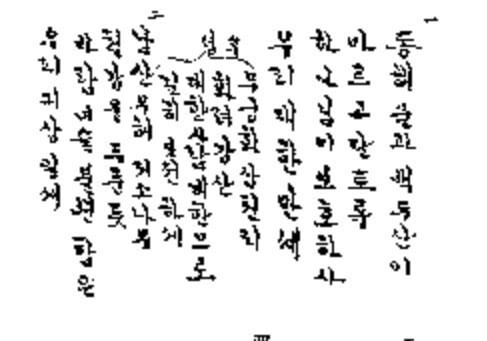 一
동해물과 백두산이
마르고 달토록
하나님이 보호하사
우리대한만세
후렴
무궁화 삼천리
화려강산
대한사람 대한으로
길이 보전하세
二
남산우헤 저소나무
철갑을 두른듯
불변함은
우리긔상일세